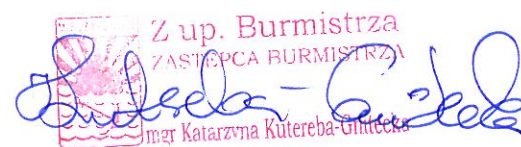 Z up. Burmistrza
ZASTĘPCA BURMISTRZA
mgr Katarzyna Kutereba-